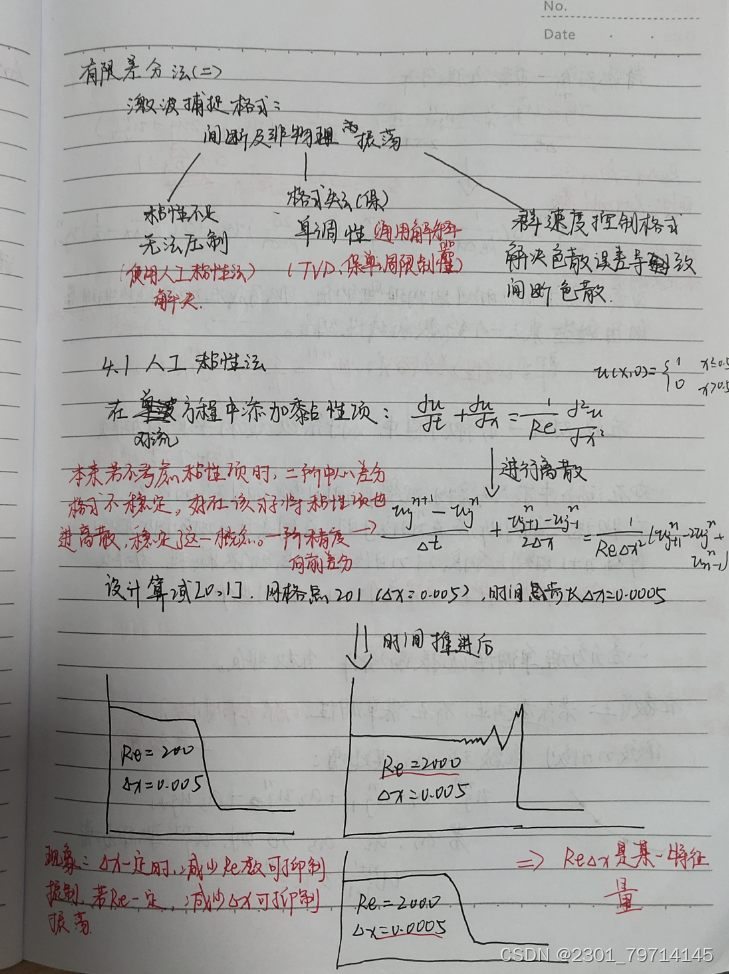 No.
Date
有限差分法(二)
激波捕捉格式：
间断及非物理振荡
粘性不足
无法压制
(使用人工粘性法)
解决.
格式失去(保)
单调性 通用解释
(TVD、保单调限制器)
群速度控制格式
解决色散误差导致
间断色散.
4.1 人工粘性法
u(x,0)={1 x≤0.5
0 x>0.5
在 方程中添加黏性项： du/dt + du/dx = 1/Re d²u/dx²
对流
进行离散
本来若不考虑粘性项时，二阶中心差分
格式不稳定，好在该式子将粘性项也
进离散，稳定了这一概念。一阶精度 →
向前差分
(uj^n+1 - uj^n)/Δt + (uj+1^n - uj-1^n)/2Δx = 1/ReΔx² (uj+1^n - 2uj^n + un-1^n)
设计算域[0,1]．网格点201 (Δx=0.005)，时间步长Δx=0.0005
时间推进后
Re=200
Δx=0.005
Re=2000
Δx=0.005
现象：Δx一定时，减少Re数可抑制
振荡，若Re一定，减少Δx可抑制
振荡
Re=2000
Δx=0.0005
⇒ ReΔx是某一特征
量
CSDN @2301_79714145